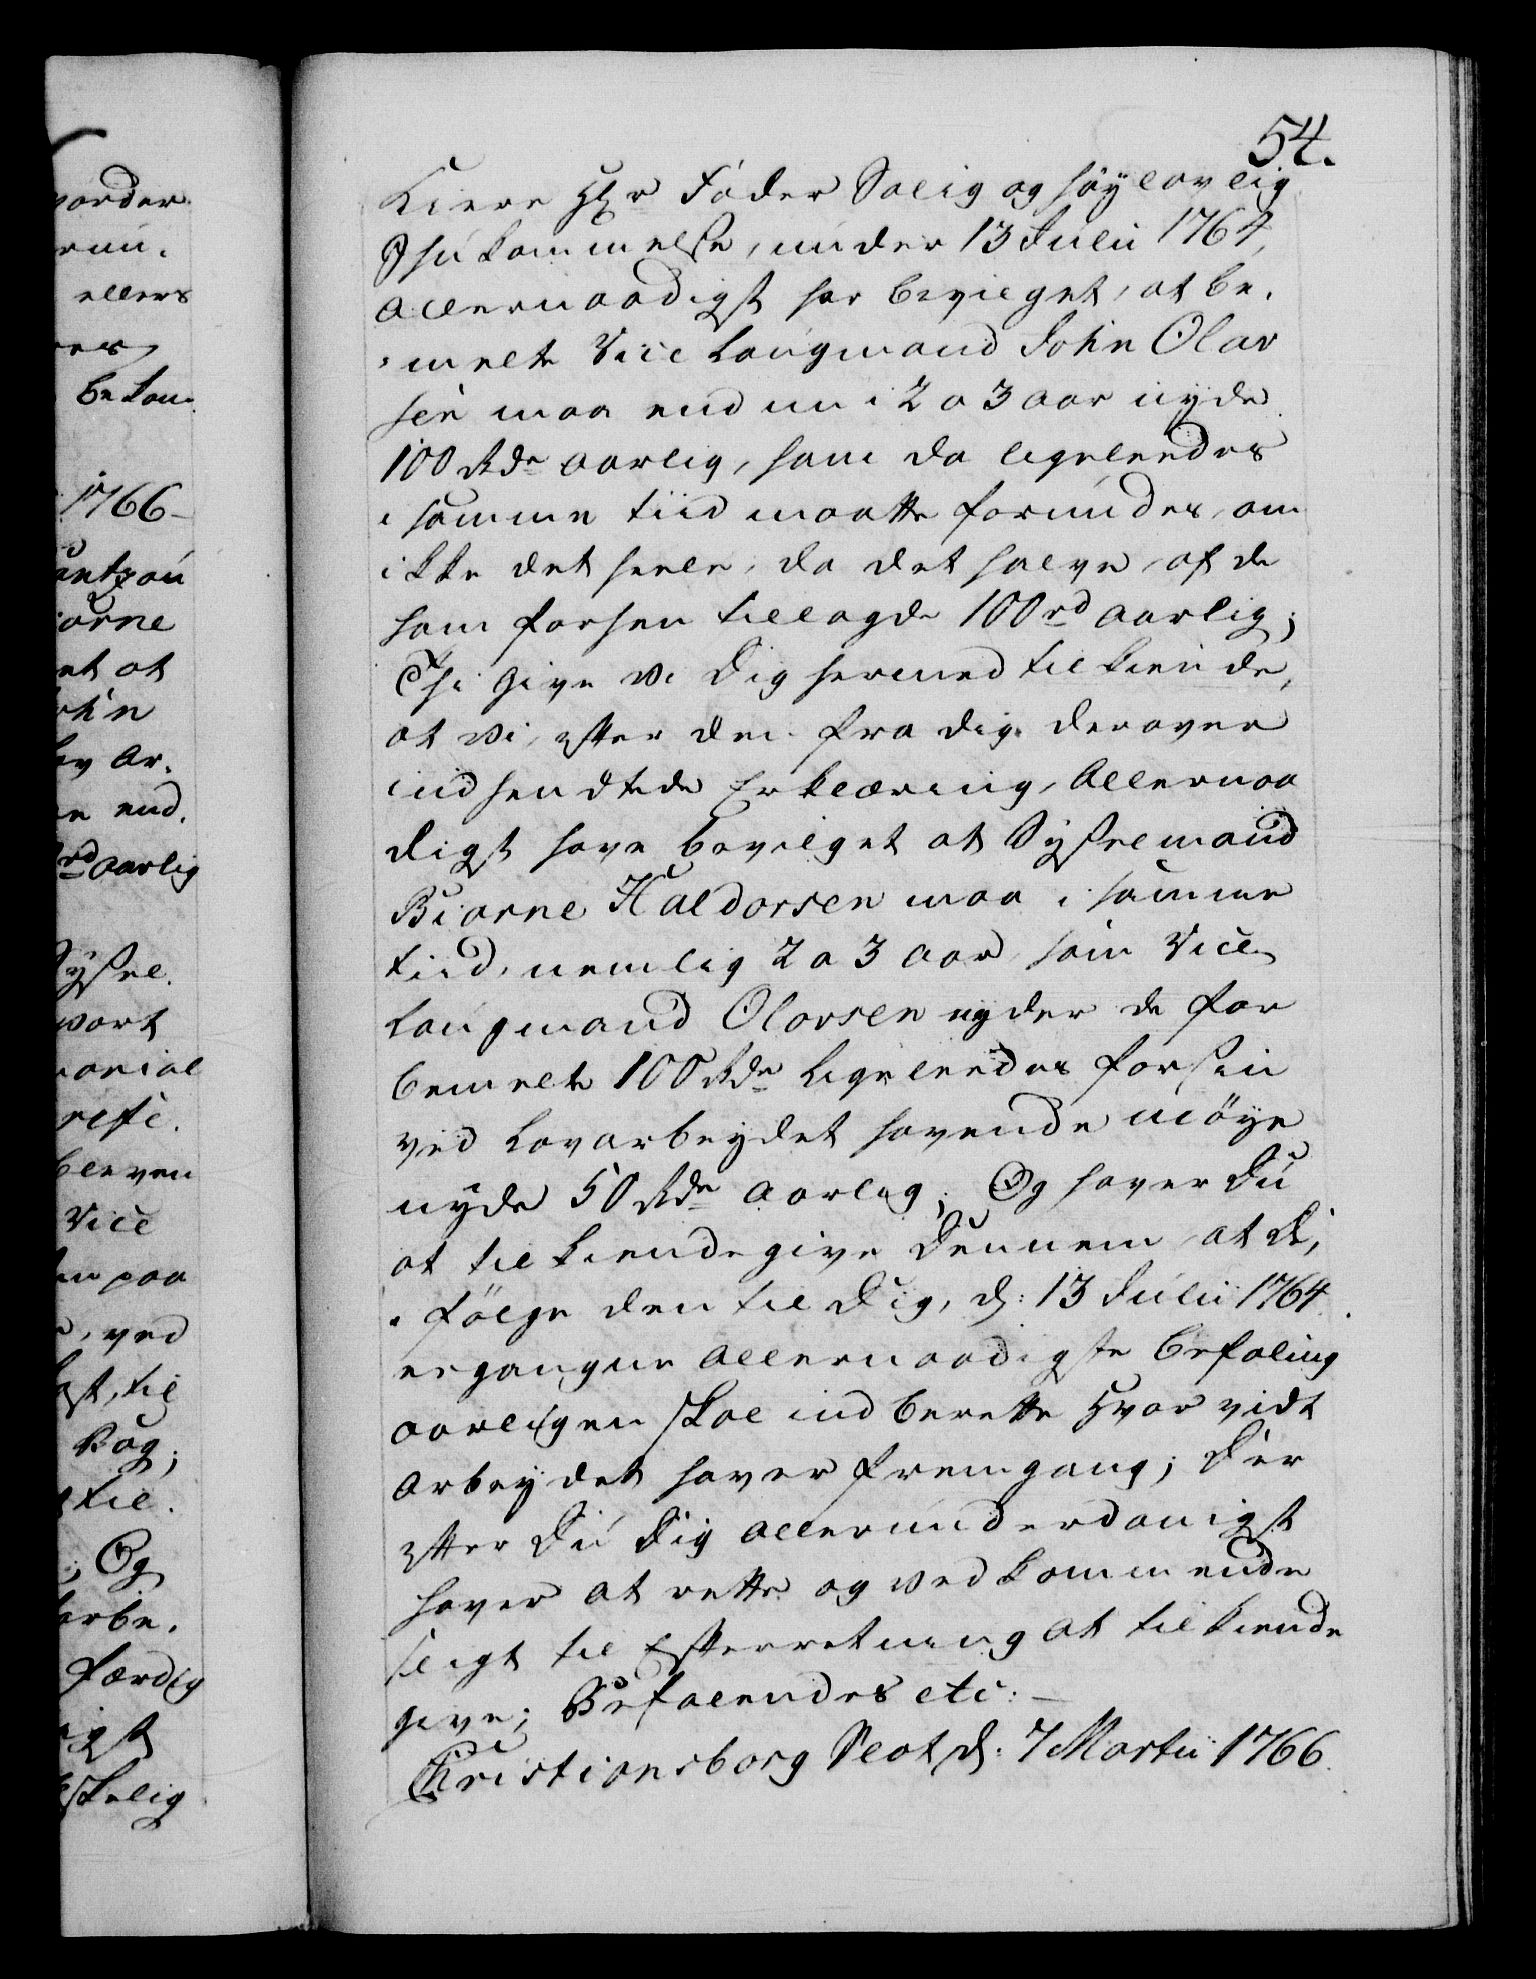 54.
Kiere Hr Fader Salig og Høylovlig
Ihukommelse, under 13 Julii 1764,
allernaadigst har bevilget, at be-
-melte Vice Laugmand John Olav
sen maa endnu i 2 a 3 aar nyde
100 Rdr aarlig, som da ligeleedes
i samme tiid maatte forundes, om
ikke det heele, da det halve, af de
ham forhen tillagde 100 rd aarlig;
Thi give Vi Dig hermed tilkiende,
at Vi, efter den fra dig derover
indhendtede Erklæring, Allernaa
digst have bevilget at Sysselmand
Biarne Haldorsen maa i samme
tiid, nemlig 2 a 3 aar, som Vice
Laugmand Olavsen nyder de for
bemelte 100 Rdr ligeleedes for sin
ved Lovarbeydet havende møye
nyde 50 Rdr aarlig; Og haver Du
at tilkiendegive Dennem, at de,
i følge den til Dig, d: 13 Julii 1764
ergangne allernaadigste befaling
aarligen skal indberette hvor vidt
arbeydet haver fremgang; Der
efter Du Dig allerunderdanigst
haver at rette og vedkommende
sligt til Efterretning at tilkiende
give; Befalendes etc: —
Christiansborg Slot d: 7 Martii 1766.
vorder
ellers
bekom
1766
arne
et at
John
end
rd aarlig
Syssel
vort
bleven
Vice
paa
ved
til
Bog;
til
Og
arbe
færdig